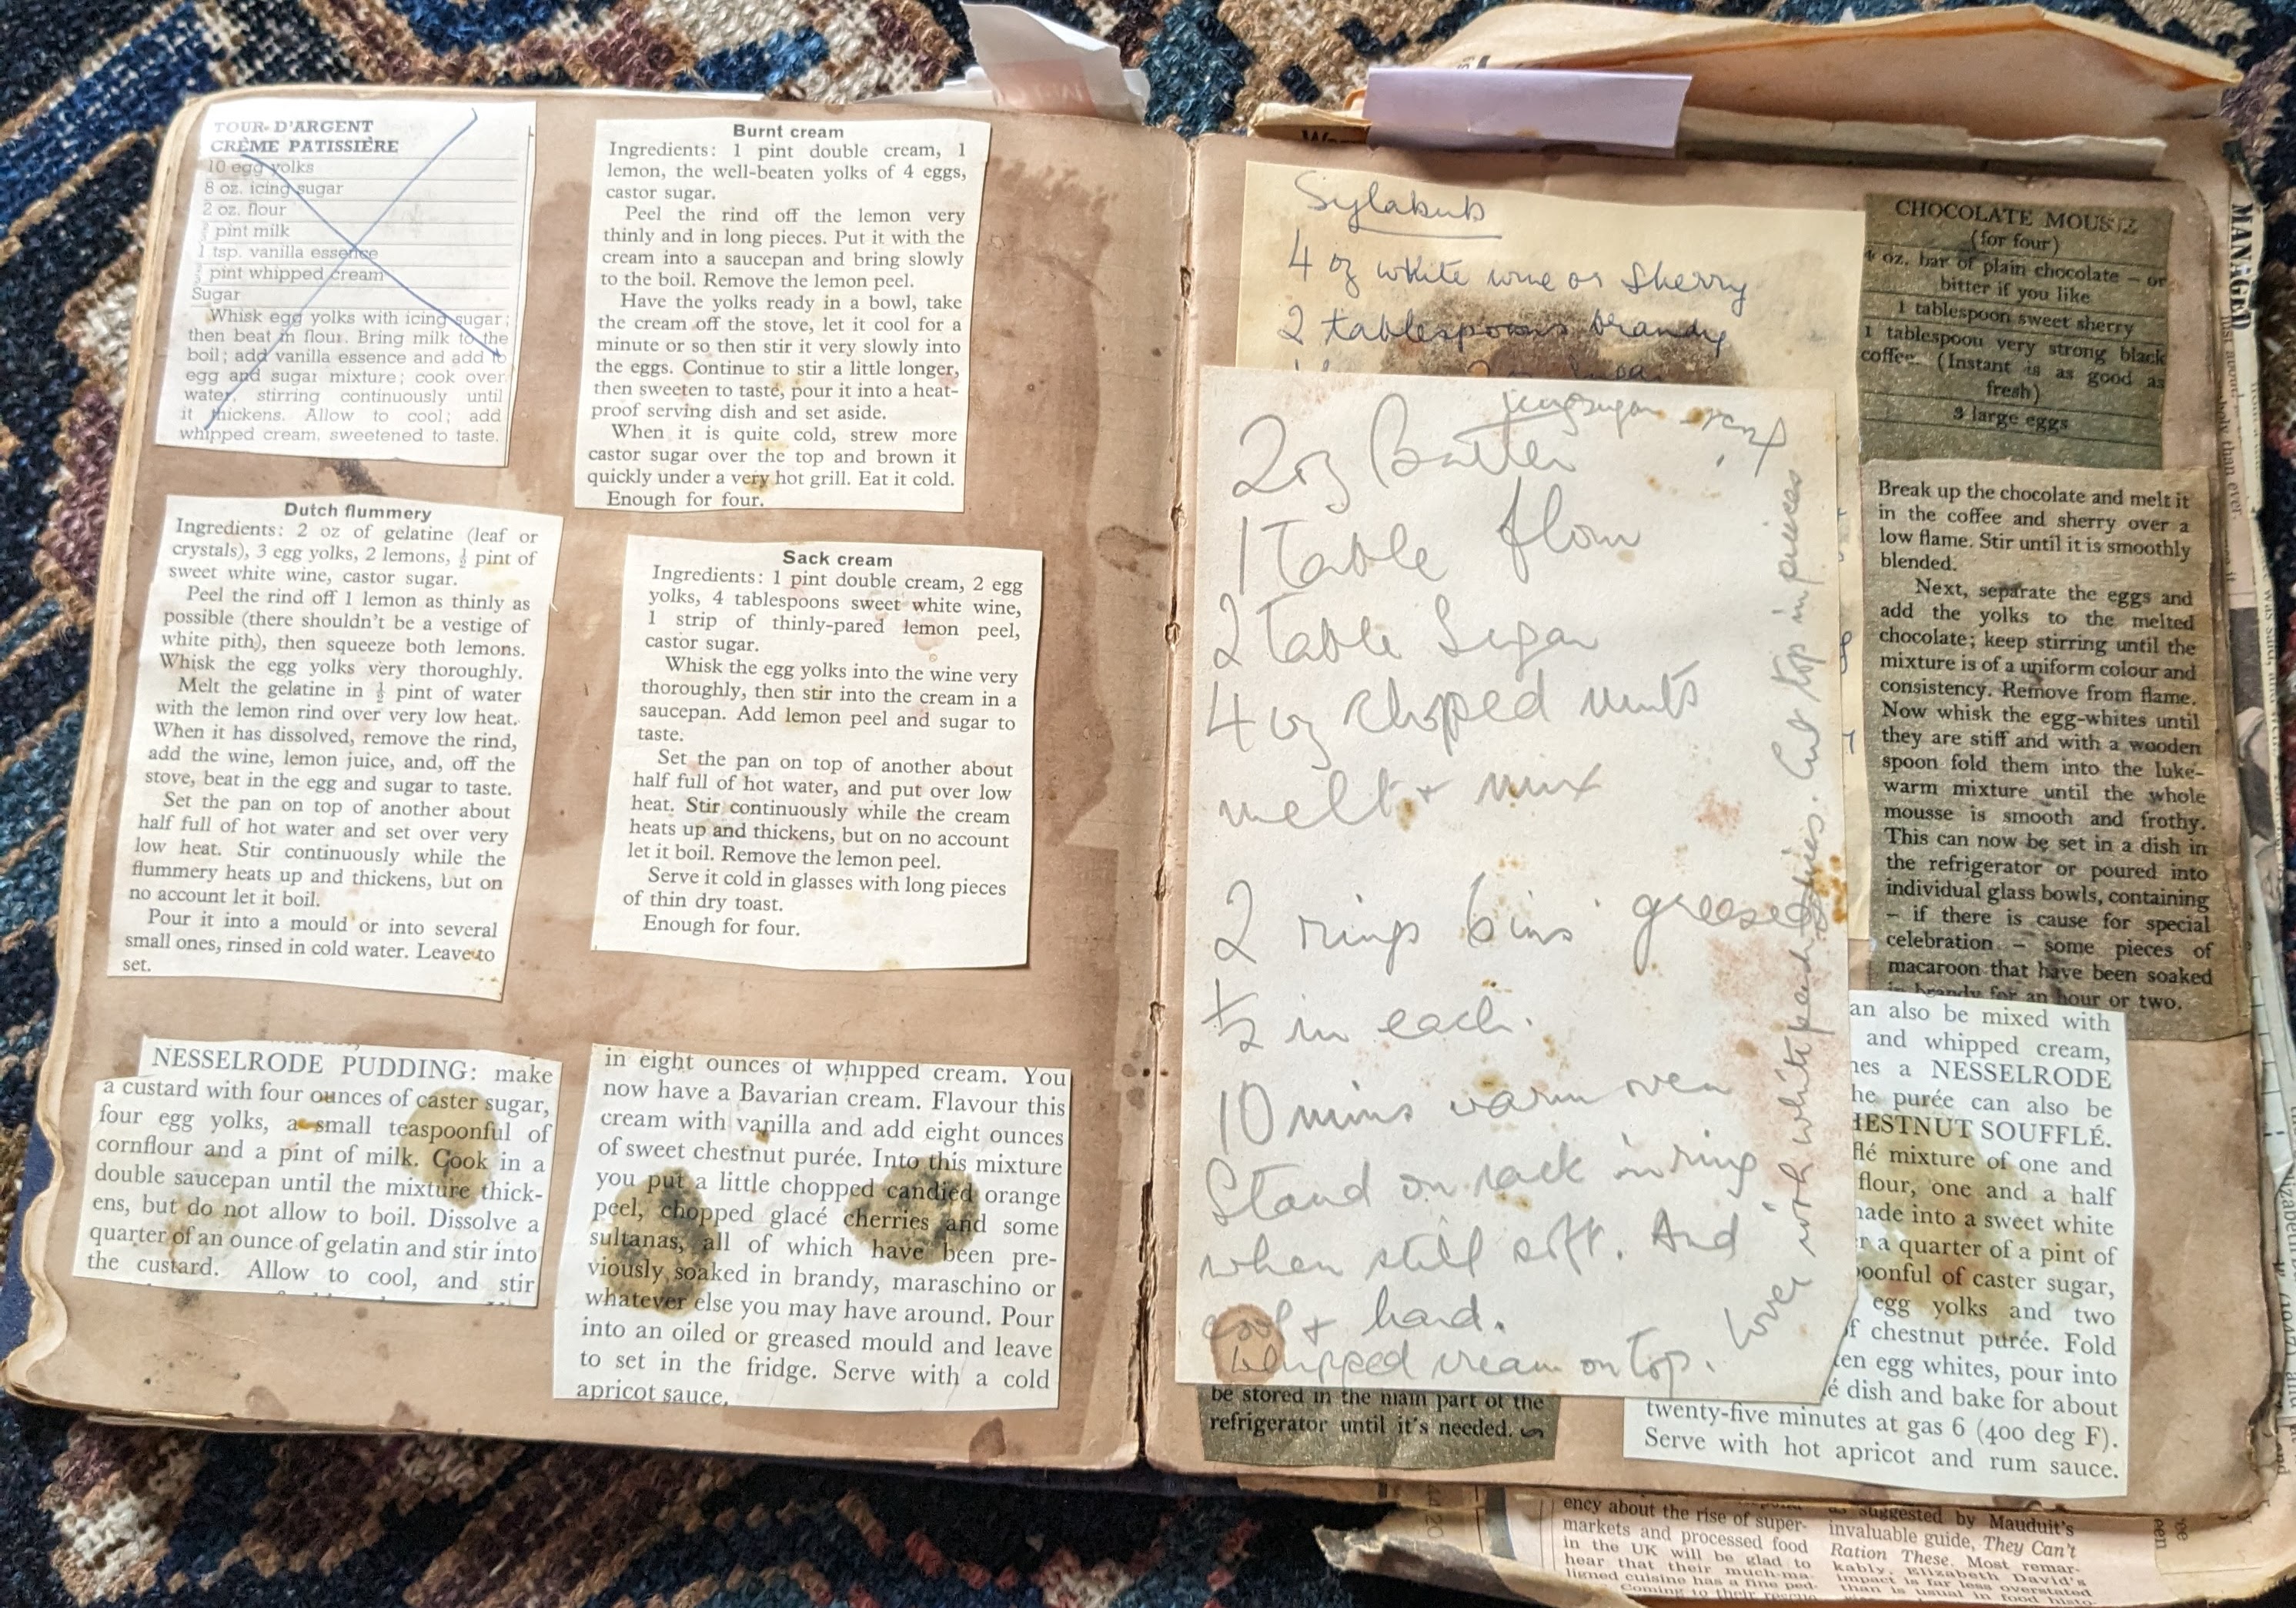 TOUR D'ARGENT
CRÈME PATISSIÈRE
10 egg yolks
8 oz. icing sugar
2 oz. flour
pint milk
1 tsp. vanilla essence
pint whipped cream
Sugar
Whisk egg yolks with icing sugar;
then beat in flour. Bring milk to the
boil; add vanilla essence and add to
egg and sugar mixture; cook over
water, stirring continuously until
it thickens. Allow to cool; add
whipped cream, sweetened to taste.
Burnt cream
Ingredients: 1 pint double cream, 1
lemon, the well-beaten yolks of 4 eggs,
castor sugar.
Peel the rind off the lemon very
thinly and in long pieces. Put it with the
cream into a saucepan and bring slowly
to the boil. Remove the lemon peel.
Have the yolks ready in a bowl, take
the cream off the stove, let it cool for a
minute or so then stir it very slowly into
the eggs. Continue to stir a little longer,
then sweeten to taste, pour it into a heat-
proof serving dish and set aside.
When it is quite cold, strew more
castor sugar over the top and brown it
quickly under a very hot grill. Eat it cold.
Enough for four.
Dutch flummery
Ingredients: 2 oz of gelatine (leaf or
crystals), 3 egg yolks, 2 lemons, ½ pint of
sweet white wine, castor sugar.
Peel the rind off 1 lemon as thinly as
possible (there shouldn't be a vestige of
white pith), then squeeze both lemons.
Whisk the egg yolks very thoroughly.
Melt the gelatine in ½ pint of water
with the lemon rind over very low heat.
When it has dissolved, remove the rind,
add the wine, lemon juice, and, off the
stove, beat in the egg and sugar to taste.
Set the pan on top of another about
half full of hot water and set over very
low heat. Stir continuously while the
flummery heats up and thickens, but on
no account let it boil.
Pour it into a mould or into several
small ones, rinsed in cold water. Leave to
set.
Sack cream
Ingredients: 1 pint double cream, 2 egg
yolks, 4 tablespoons sweet white wine,
1 strip of thinly-pared lemon peel,
castor sugar.
Whisk the egg yolks into the wine very
thoroughly, then stir into the cream in a
saucepan. Add lemon peel and sugar to
taste.
Set the pan on top of another about
half full of hot water, and put over low
heat. Stir continuously while the cream
heats up and thickens, but on no account
let it boil. Remove the lemon peel.
Serve it cold in glasses with long pieces
of thin dry toast.
Enough for four.
NESSELRODE PUDDING: make
a custard with four ounces of caster sugar,
four egg yolks, a small teaspoonful of
cornflour and a pint of milk. Cook in a
double saucepan until the mixture thick-
ens, but do not allow to boil. Dissolve a
quarter of an ounce of gelatin and stir into
the custard. Allow to cool, and stir
in eight ounces of whipped cream. You
now have a Bavarian cream. Flavour this
cream with vanilla and add eight ounces
of sweet chestnut purée. Into this mixture
you put a little chopped candied orange
peel, chopped glacé cherries and some
sultanas, all of which have been pre-
viously soaked in brandy, maraschino or
whatever else you may have around. Pour
into an oiled or greased mould and leave
to set in the fridge. Serve with a cold
apricot sauce.
Sylabub
4 oz white wine or Sherry
2 tablespoons brandy
2oz Butter
1 Table flour
2 Table Sugar
4 oz chopped nuts
melt + mix
2 rings 6ins greased
½ in each.
10 mins warm oven
Stand on rack in ring
when still soft. And
cool + hard.
Whipped cream on top.
Cover with white peaches. Cut top in pieces
CHOCOLATE MOUSSE
(for four)
4 oz. bar of plain chocolate – or
bitter if you like
1 tablespoon sweet sherry
1 tablespoon very strong black
coffee (Instant is as good as
fresh)
3 large eggs
Break up the chocolate and melt it
in the coffee and sherry over a
low flame. Stir until it is smoothly
blended.
Next, separate the eggs and
add the yolks to the melted
chocolate; keep stirring until the
mixture is of a uniform colour and
consistency. Remove from flame.
Now whisk the egg-whites until
they are stiff and with a wooden
spoon fold them into the luke-
warm mixture until the whole
mousse is smooth and frothy.
This can now be set in a dish in
the refrigerator or poured into
individual glass bowls, containing
– if there is cause for special
celebration – some pieces of
macaroon that have been soaked
in brandy for an hour or two.
be stored in the main part of the
refrigerator until it's needed.
an also be mixed with
and whipped cream,
a NESSELRODE
purée can also be
CHESTNUT SOUFFLÉ.
mixture of one and
flour, one and a half
made into a sweet white
a quarter of a pint of
of caster sugar,
egg yolks and two
of chestnut purée. Fold
egg whites, pour into
dish and bake for about
twenty-five minutes at gas 6 (400 deg F).
Serve with hot apricot and rum sauce.
MANAGED
ency about the rise of super-
markets and processed food
in the UK will be glad to
hear that their much-ma-
ligned cuisine has a fine ped-
Coming to their rescue
as suggested by Mauduit's
invaluable guide, They Can't
Ration These. Most remar-
kably, Elizabeth David's
impact is far less overstated
than is usual in food histo-